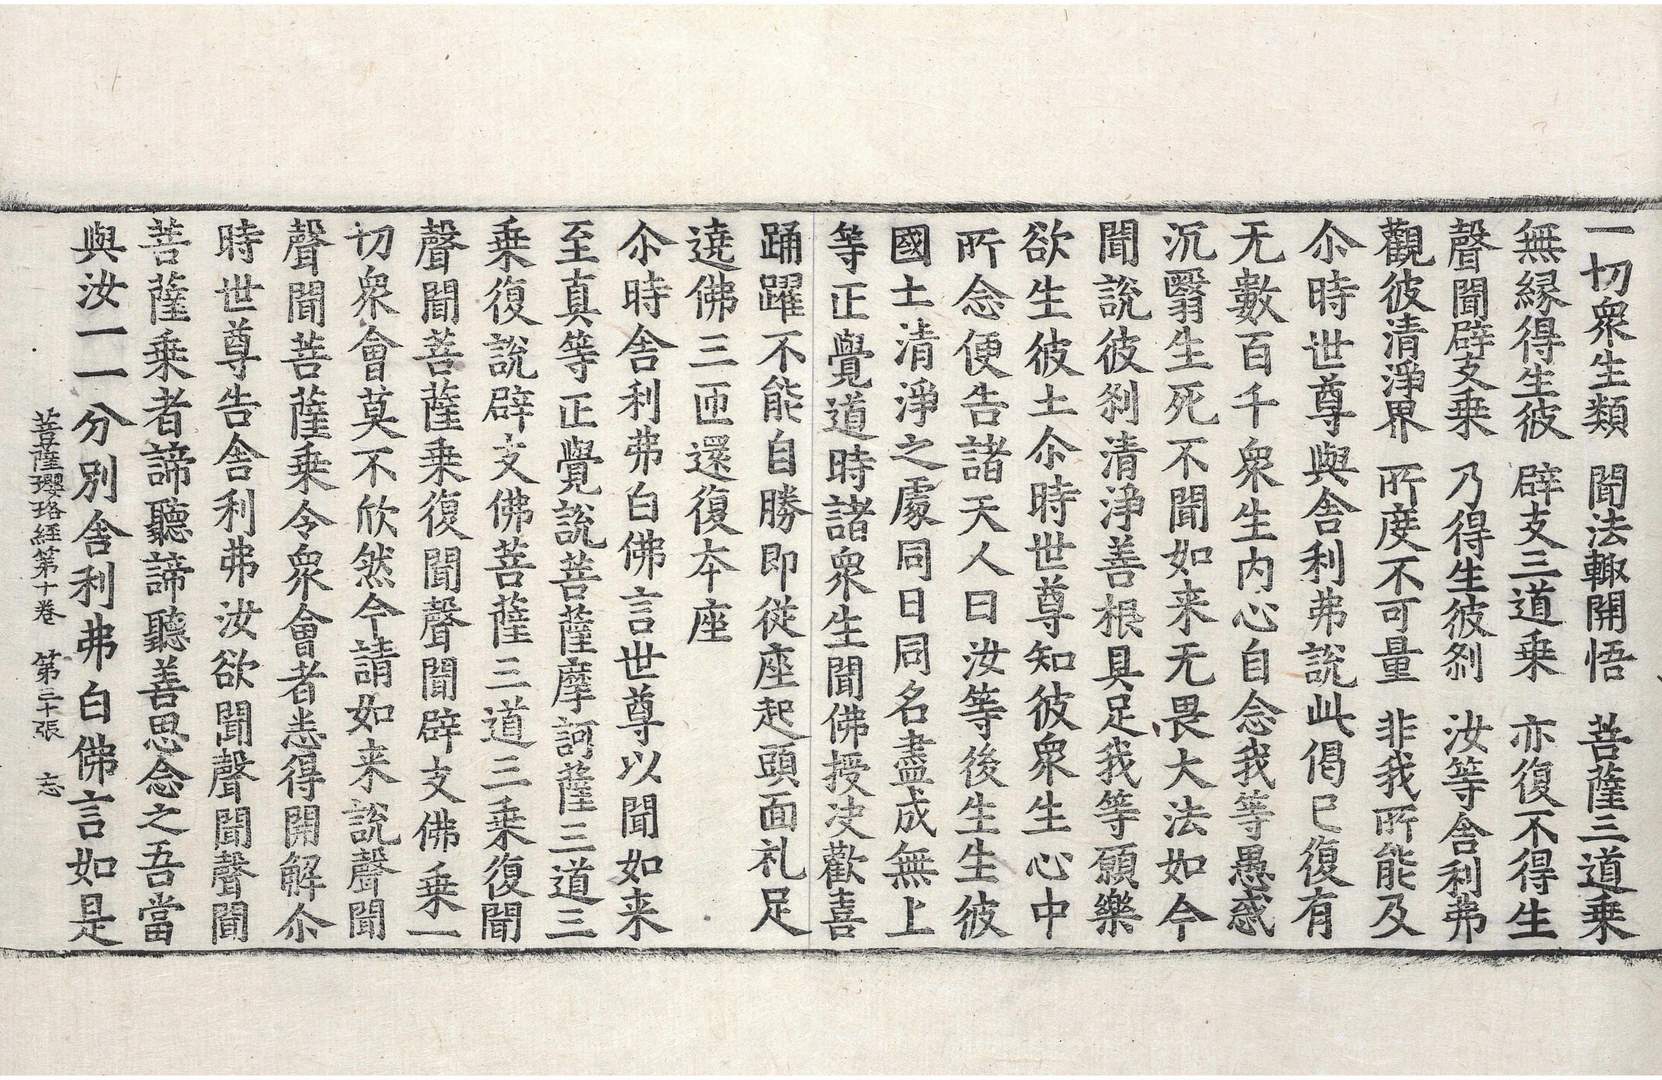 一切衆生類　聞法輙開悟　菩薩三道乗
無縁得生彼　辟支三道乗　亦復不得生
聲聞辟支乗　乃得生彼刹　汝等舎利弗
觀彼清淨界　所度不可量　非我所能及
尒時世尊與舎利弗說此偈已復有
无數百千衆生内心自念我等愚惑
沉翳生死不聞如来无畏大法如今
聞說彼刹清淨善根具足我等願樂
欲生彼土尒時世尊知彼衆生心中
所念便告諸天人曰汝等後生生彼
國土清淨之處同日同名盡成無上
等正覺道時諸衆生聞佛授决歡喜
踊躍不能自勝即從座起頭面礼足
遶佛三匝還復本座
尒時舎利弗白佛言世尊以聞如来
至真等正覺說菩薩摩訶薩三道三
乗復說辟支佛菩薩三道三乗復聞
聲聞菩薩乗復聞聲聞辟支佛乗一
切衆會莫不欣然今請如来說聲聞
聲聞菩薩乗令衆會者悉得開解尒
時世尊告舎利弗汝欲聞聲聞聲聞
菩薩乗者諦聽諦聽善思念之吾當
與汝一一分別舎利弗白佛言如是
菩薩瓔珞經第十卷　第三十張　忘